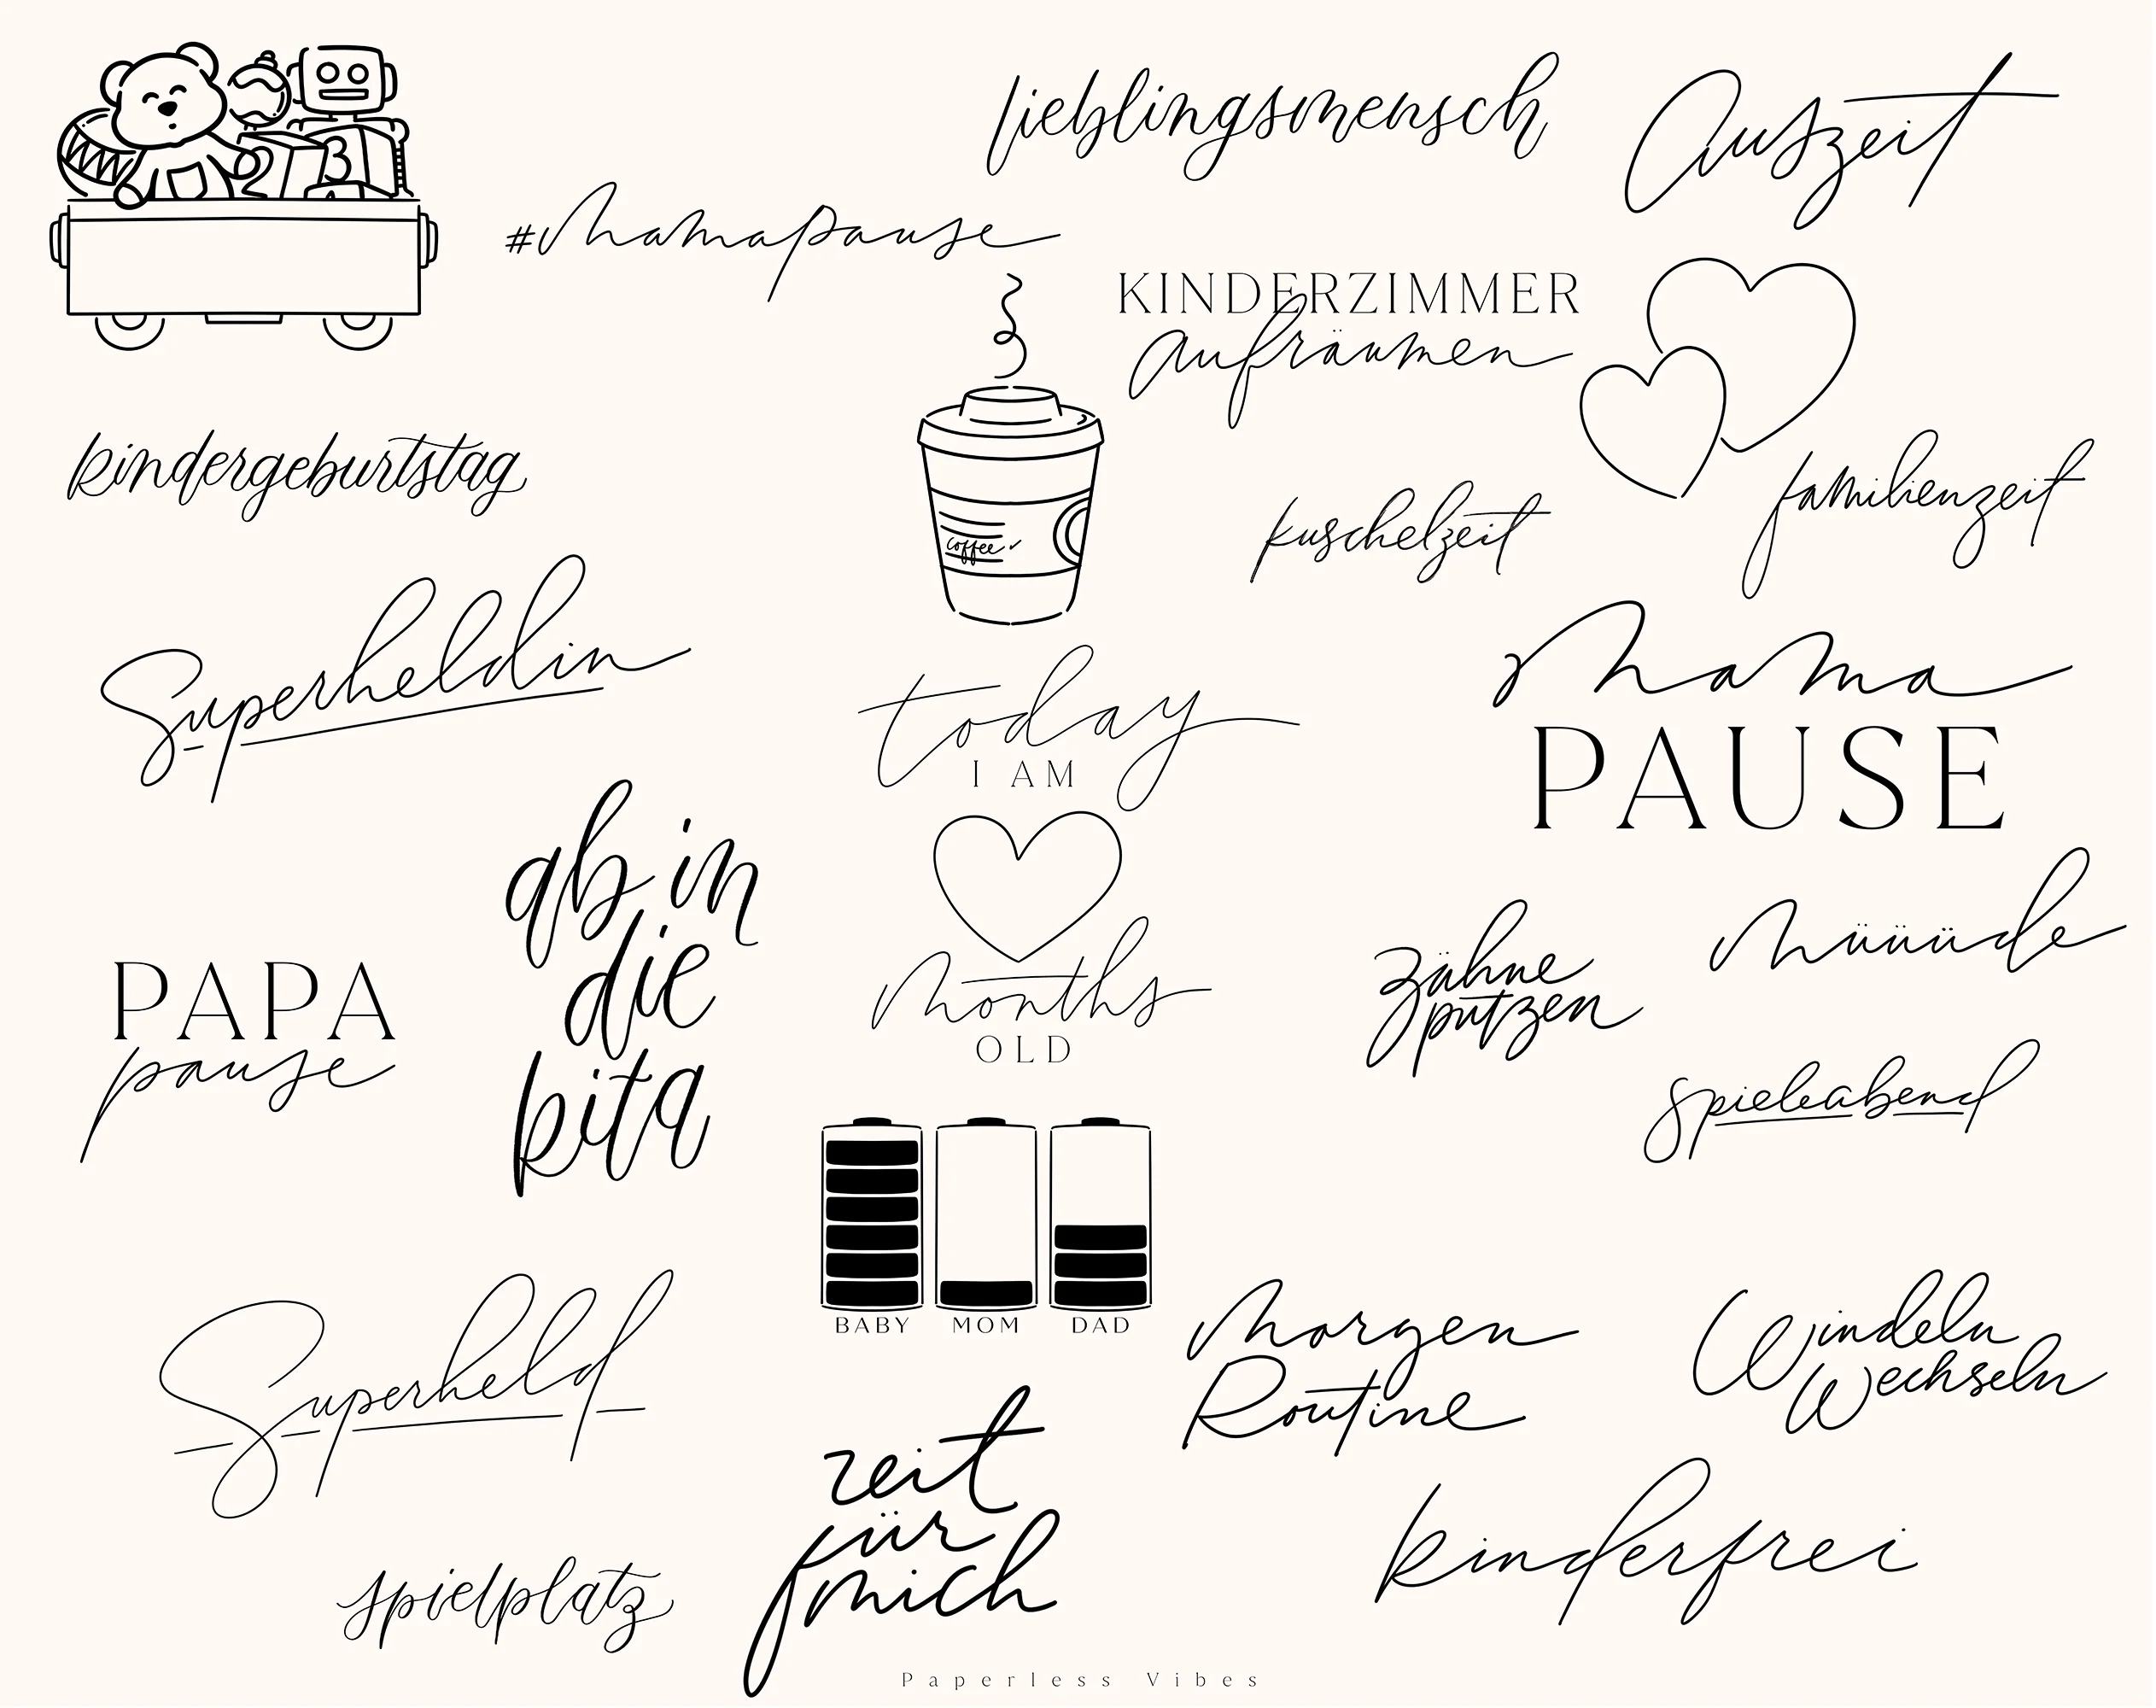 lieblingsmensch
Auszeit
#mamapause
KINDERZIMMER
aufräumen
2
3
kindergeburtstag
familienzeit
kuschelzeit
coffee
Superheldin
Mama
PAUSE
today
I AM
months
OLD
ab in
die
kita
müüüde
Zähne
putzen
PAPA
pause
spieleabend
BABY
MOM
DAD
Morgen
Routine
Windeln
Wechseln
Superheld
zeit
für
mich
kinderfrei
spielplatz
Paperless Vibes